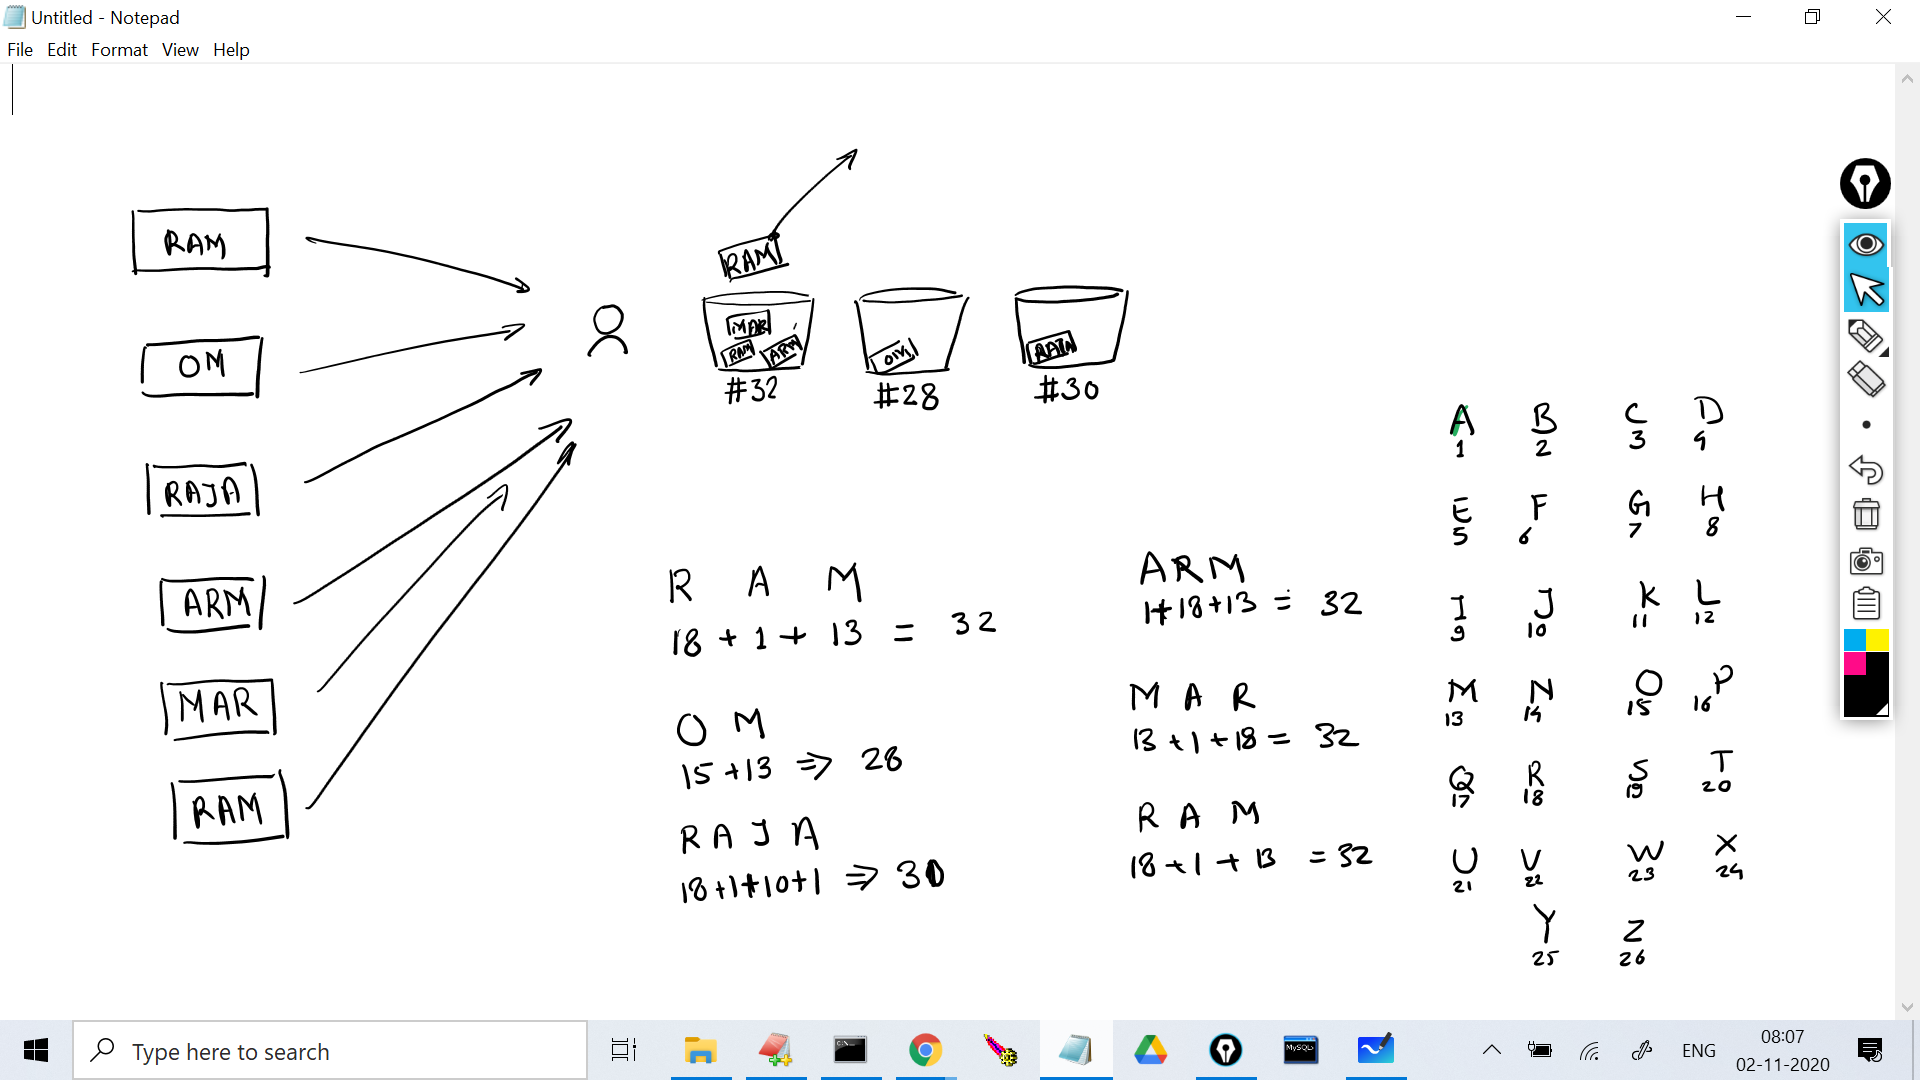 Untitled - Notepad
File Edit Format View Help
RAM
OM
RAJA
ARM
MAR
RAM
RAM
MAR
RAM ARM
#32
OM
#28
RAJA
#30
R A M
18 + 1 + 13 = 32
O M
15 + 13 => 28
R A J A
18+1+10+1 => 30
ARM
1+18+13 = 32
M A R
13 + 1 + 18 = 32
R A M
18 + 1 + 13 = 32
A B C D
1 2 3 4
E F G H
5 6 7 8
I J K L
9 10 11 12
M N O P
13 14 15 16
Q R S T
17 18 19 20
U V W X
21 22 23 24
Y Z
25 26
Type here to search
C:\
MySQL
ENG
08:07
02-11-2020